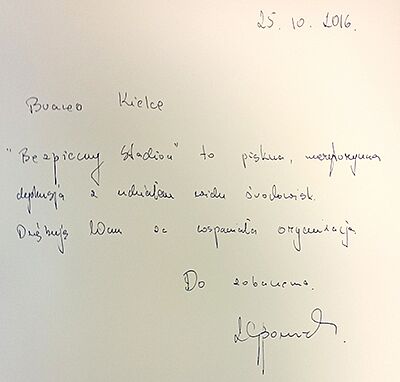 25. 10. 2016.
Brawo Kielce
"Bezpieczny Stadion" to piękna, merytoryczna
dyskusja z udziałem wielu środowisk.
Dziękuję Wam za wspaniałą organizację.
Do zobaczenia.